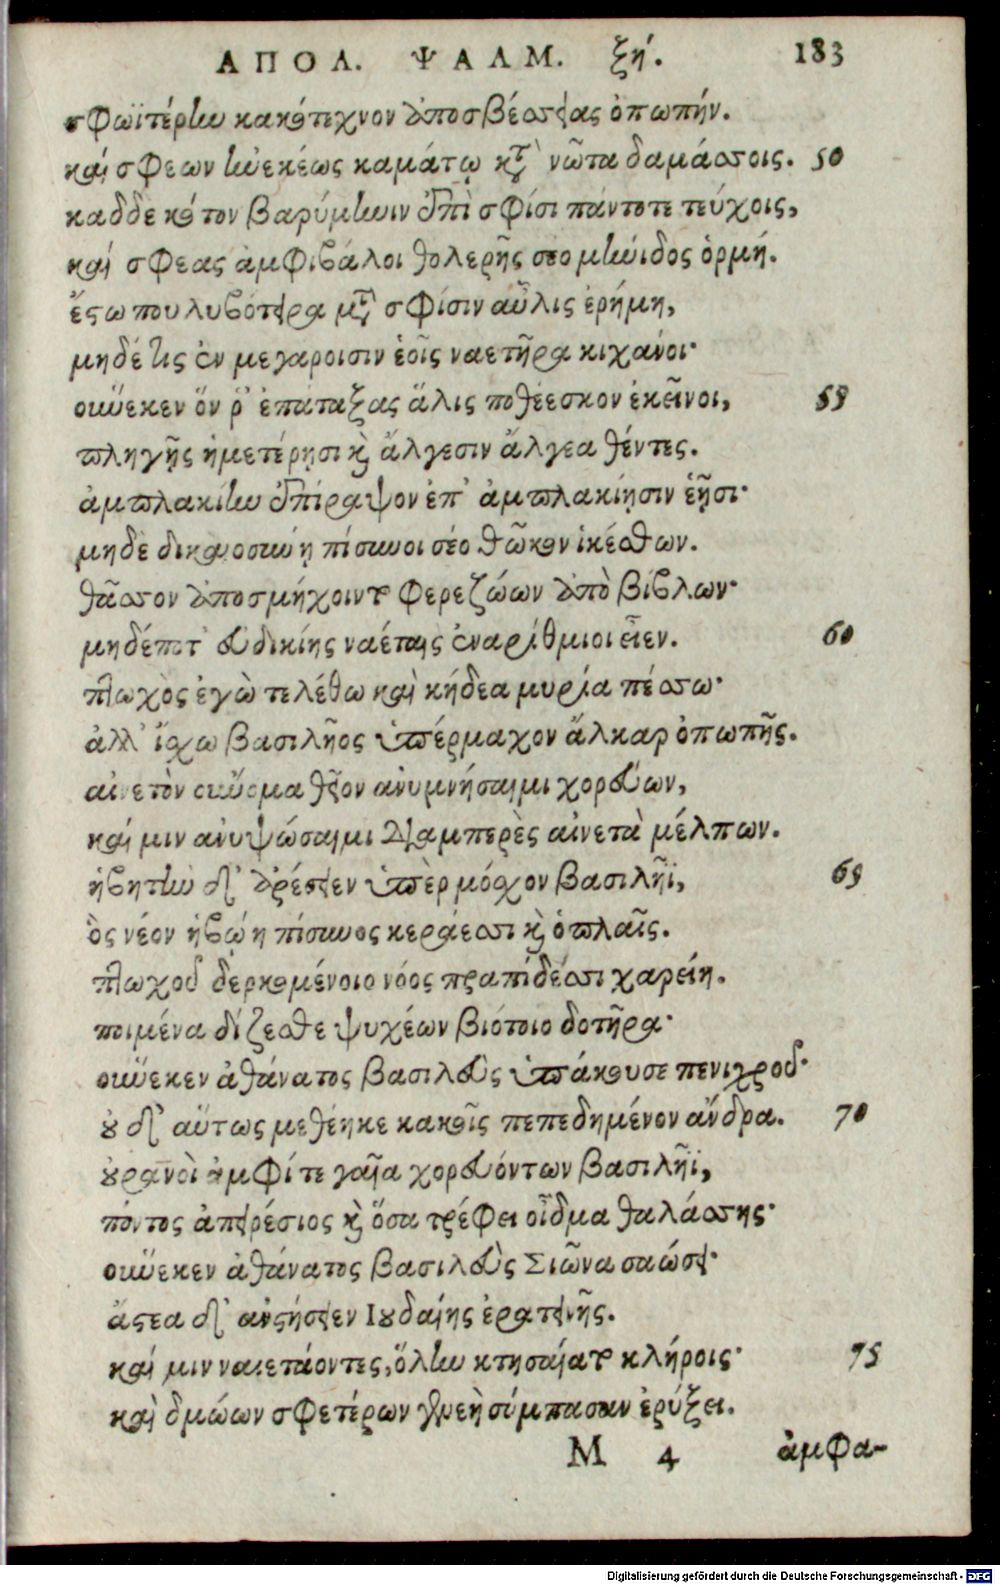 ΑΠΟΛ. ΨΑΛΜ. ξή. 183
σφωϊτέρην κακότεχνον ἀποσβέσειας ὀπωπήν.
καί σφεων ἠνεκέως καμάτῳ κατὰ νῶτα δαμάσσοις. 50
καδδε κότον βαρύμηνιν ἐπὶ σφίσι πάντοτε τεύχοις,
καί σφεας ἀμφιβάλοι θολερῆς σεο μήνιδος ὁρμή.
ἔστω πουλυβότειρα μετὰ σφίσιν αὖλις ἐρήμη,
μηδέ τις ἐν μεγαροισιν ἑοῖς ναετῆρα κιχάνοι·
οὕνεκεν ὅν ῥ' ἐπάταξας ἅλις ποθέεσκον ἐκεῖνοι, 55
πληγῇς ἡμετέρῃσι καὶ ἄλγεσιν ἄλγεα θέντες.
ἀμπλακίην ἐπίραψον ἐπ' ἀμπλακίῃσιν ἑῇσι·
μηδὲ δικαιοσύνῃ πίσυνοι σέο θῶκον ἱκέσθων.
θᾶσσον ἀποσμήχοιντο φερεζώων ἀπὸ βίβλων·
μηδέποτ' εὐδικίης ναέταις ἐναρίθμιοι εἶεν. 60
πτωχὸς ἐγὼ τελέθω καὶ κήδεα μυρία πέσσω·
ἀλλ' ἴσχω βασιλῆος ὑπέρμαχον ἄλκαρ ὀπωπῆς.
αἰνετὸν οὔνομα θεῖον ἀνυμνήσαιμι χορεύων,
καί μιν ἀνυψώσαιμι διαμπερὲς αἰνετὰ μέλπων.
ἡβητὴν δ' ἀρέσειεν ὑπὲρ μόσχον βασιλῆϊ, 65
ὃς νέον ἡβώῃ πίσυνος κεράεσσι καὶ ὁπλαῖς.
πτωχοῦ δερκομένοιο νόος πραπίδέσσι χαρείη.
ποιμένα δίζεσθε ψυχέων βιότοιο δοτῆρα·
οὕνεκεν ἀθάνατος βασιλεὺς ὑπάκουσε πενιχροῦ·
οὐ δ' αὕτως μεθέηκε κακοῖς πεπεδημένον ἄνδρα. 70
οὐρανοὶ ἀμφίτε γαῖα χορευόντων βασιλῆϊ,
πόντος ἀπειρέσιος καὶ ὅσα τρέφει οἶδμα θαλάσσης·
οὕνεκεν ἀθάνατος βασιλεὺς Σιῶνα σαώσει·
ἄστεα δ' αὐξήσειεν Ιουδαίης ἐρατεινῆς.
καί μιν ναιετάοντες, ὅλην κτησαίατο κλήροις· 75
καὶ δμώων σφετέρων γενεὴ σύμπασαν ἐρύξει.
M 4 ἀμφα-
Digitalisierung gefördert durch die Deutsche Forschungsgemeinschaft - DFG